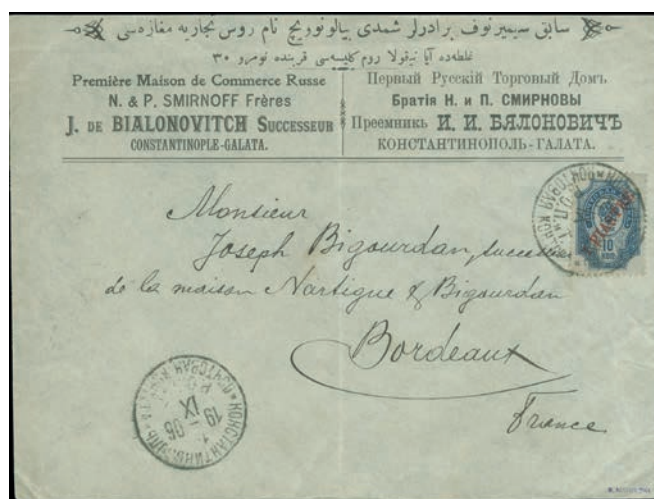 سابق سیمیرنوف برادرلر شمدی بیالونوریچ نام روس تجاریه مغازه‌سی
غلطه‌ده آیا نیقولا روم کلیسه‌سی قربنده نومرو ٣٠
Première Maison de Commerce Russe
N. & P. SMIRNOFF Frères
J. DE BIALONOVITCH SUCCESSEUR
CONSTANTINOPLE-GALATA.
Первый Русскій Торговый Домъ
Братія Н. и П. СМИРНОВЫ
Преемникъ И. И. БЯЛОНОВИЧЪ
КОНСТАНТИНОПОЛЬ-ГАЛАТА.
Monsieur
Joseph Bigourdan, success
de la maison Nartigue & Bigourdan
Bordeaux
France
10
КОНСТАНТИНОПОЛЬ
19 IX 06